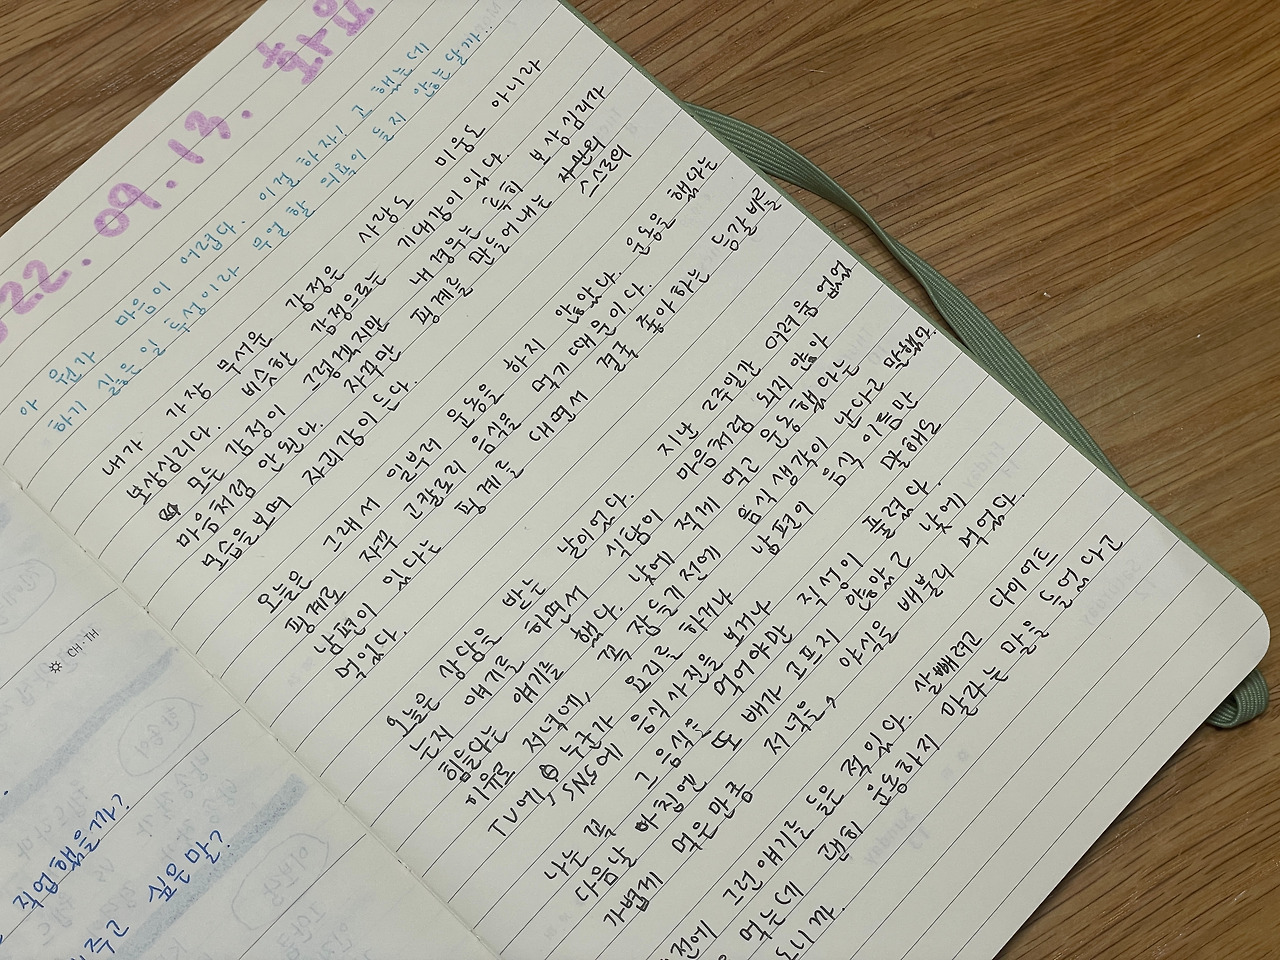 22. 09. 13. 화요
아 뭔가 마음이 어렵다. 이걸 하자! 고 했는데
하기 싫은 일 투성이라 무얼 할 의욕이 들지 않는달까..
내가 가장 무서운 감정은 사랑도 미움도 아니라
보상심리다. 비슷한 감정으로는 기대감이 있다.
모든 감정이 그렇겠지만 내 경우는 특히 보상심리가
마음처럼 안된다. 자꾸만 핑계를 만들어내는 스스로의
모습을 보며 자괴감이 든다.
오늘은 그래서 일부러 운동을 하지 않았다. 운동을 했다는
핑계로 자꾸 고칼로리 음식을 먹기 때문이다.
남편이 있다는 핑계를 대면서 결국 좋아하는 등갈비를
먹었다.
오늘은 상담을 받는 날이었다. 지난 2주일간 어려움 없었
는지 얘기를 하면서 식탐이 마음처럼 되지 않아
힘들다는 얘기를 했다. 낮에 적게 먹고 운동했다는
이유로 저녁에, 꼭 잠들기 전에 음식 생각이 난다고 말했다.
TV에, 누군가 요리를 하거나 남편이 음식 이름만 말해도
SNS에 음식사진을 보거나
나는 꼭 그 음식을 먹어야만 직성이 풀렸다.
다음날 아침엔 또 배가 고프지 않았고 낮에
가볍게 먹은 만큼 저녁을, 야식을 배불리 먹었다.
전에 그런 얘기를 들은 적 있다. 살빼려고 다이어트
먹는데 왠 운동하지 말라는 말을 들었다고
니까.
☼ CH : TH